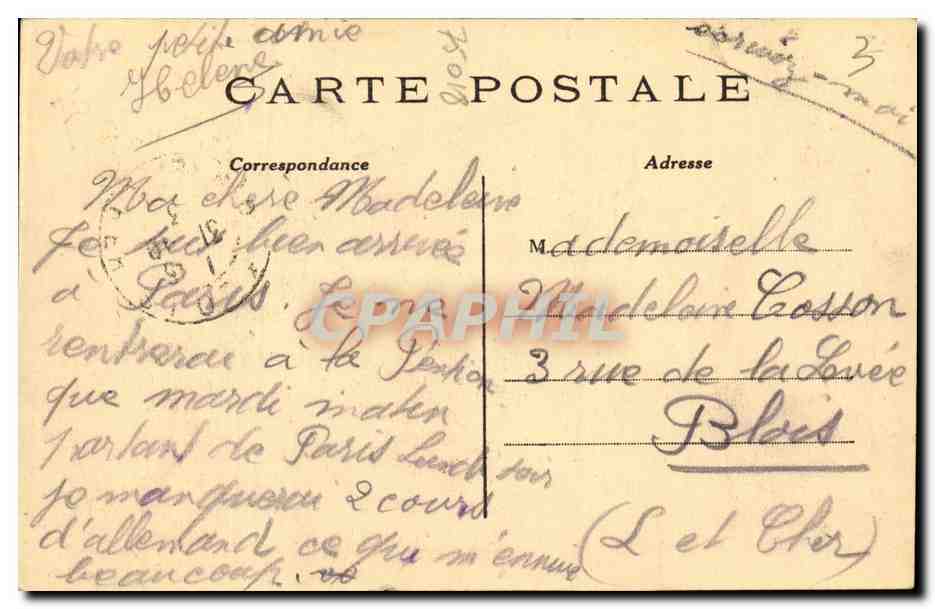 Votre petite amie
Hélène
écrivez-moi
CARTE POSTALE
Correspondance
Adresse
Ma chère Madeleine
Je suis bien arrivée
à Paris. Je ne
rentrerai à la Pention
que mardi matin
partant de Paris Lundi soir
je manquerai 2 cours
d'allemand ce qui m'ennuie
beaucoup.
Mademoiselle
Madeleine Cosson
3 rue de la Levée
Blois
(L et Cher)
CPAPHIL